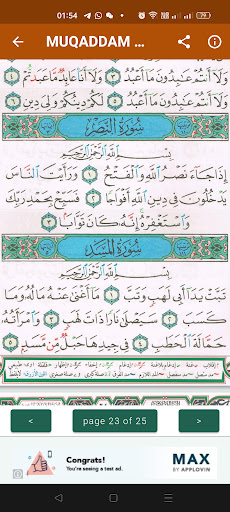 01:54
79
MUQADDAM ...
وَلَا أَنتُمْ عَٰبِدُونَ مَا أَعْبُدُ ٣ وَلَا أَنَا۠ عَابِدٌ مَّا عَبَدتُّمْ
٤ وَلَا أَنتُمْ عَٰبِدُونَ مَا أَعْبُدُ ٥ لَكُمْ دِينُكُمْ وَلِيَ دِينِ ٦
سُورَةُ النَّصْرِ
بِسْمِ اللَّهِ الرَّحْمَٰنِ الرَّحِيمِ
إِذَا جَاءَ نَصْرُ اللَّهِ وَالْفَتْحُ ١ وَرَأَيْتَ النَّاسَ
يَدْخُلُونَ فِي دِينِ اللَّهِ أَفْوَاجًا ٢ فَسَبِّحْ بِحَمْدِ رَبِّكَ
وَاسْتَغْفِرْهُ إِنَّهُ كَانَ تَوَّابًا ٣
سُورَةُ الْمَسَدِ
بِسْمِ اللَّهِ الرَّحْمَٰنِ الرَّحِيمِ
تَبَّتْ يَدَا أَبِي لَهَبٍ وَتَبَّ ١ مَا أَغْنَىٰ عَنْهُ مَالُهُ وَمَا
كَسَبَ ٢ سَيَصْلَىٰ نَارًا ذَاتَ لَهَبٍ ٣ وَامْرَأَتُهُ
حَمَّالَةَ الْحَطَبِ ٤ فِي جِيدِهَا حَبْلٌ مِّن مَّسَدٍ ٥
<
page 23 of 25
>
Congrats!
You're seeing a test ad.
MAX
BY APPLOVIN